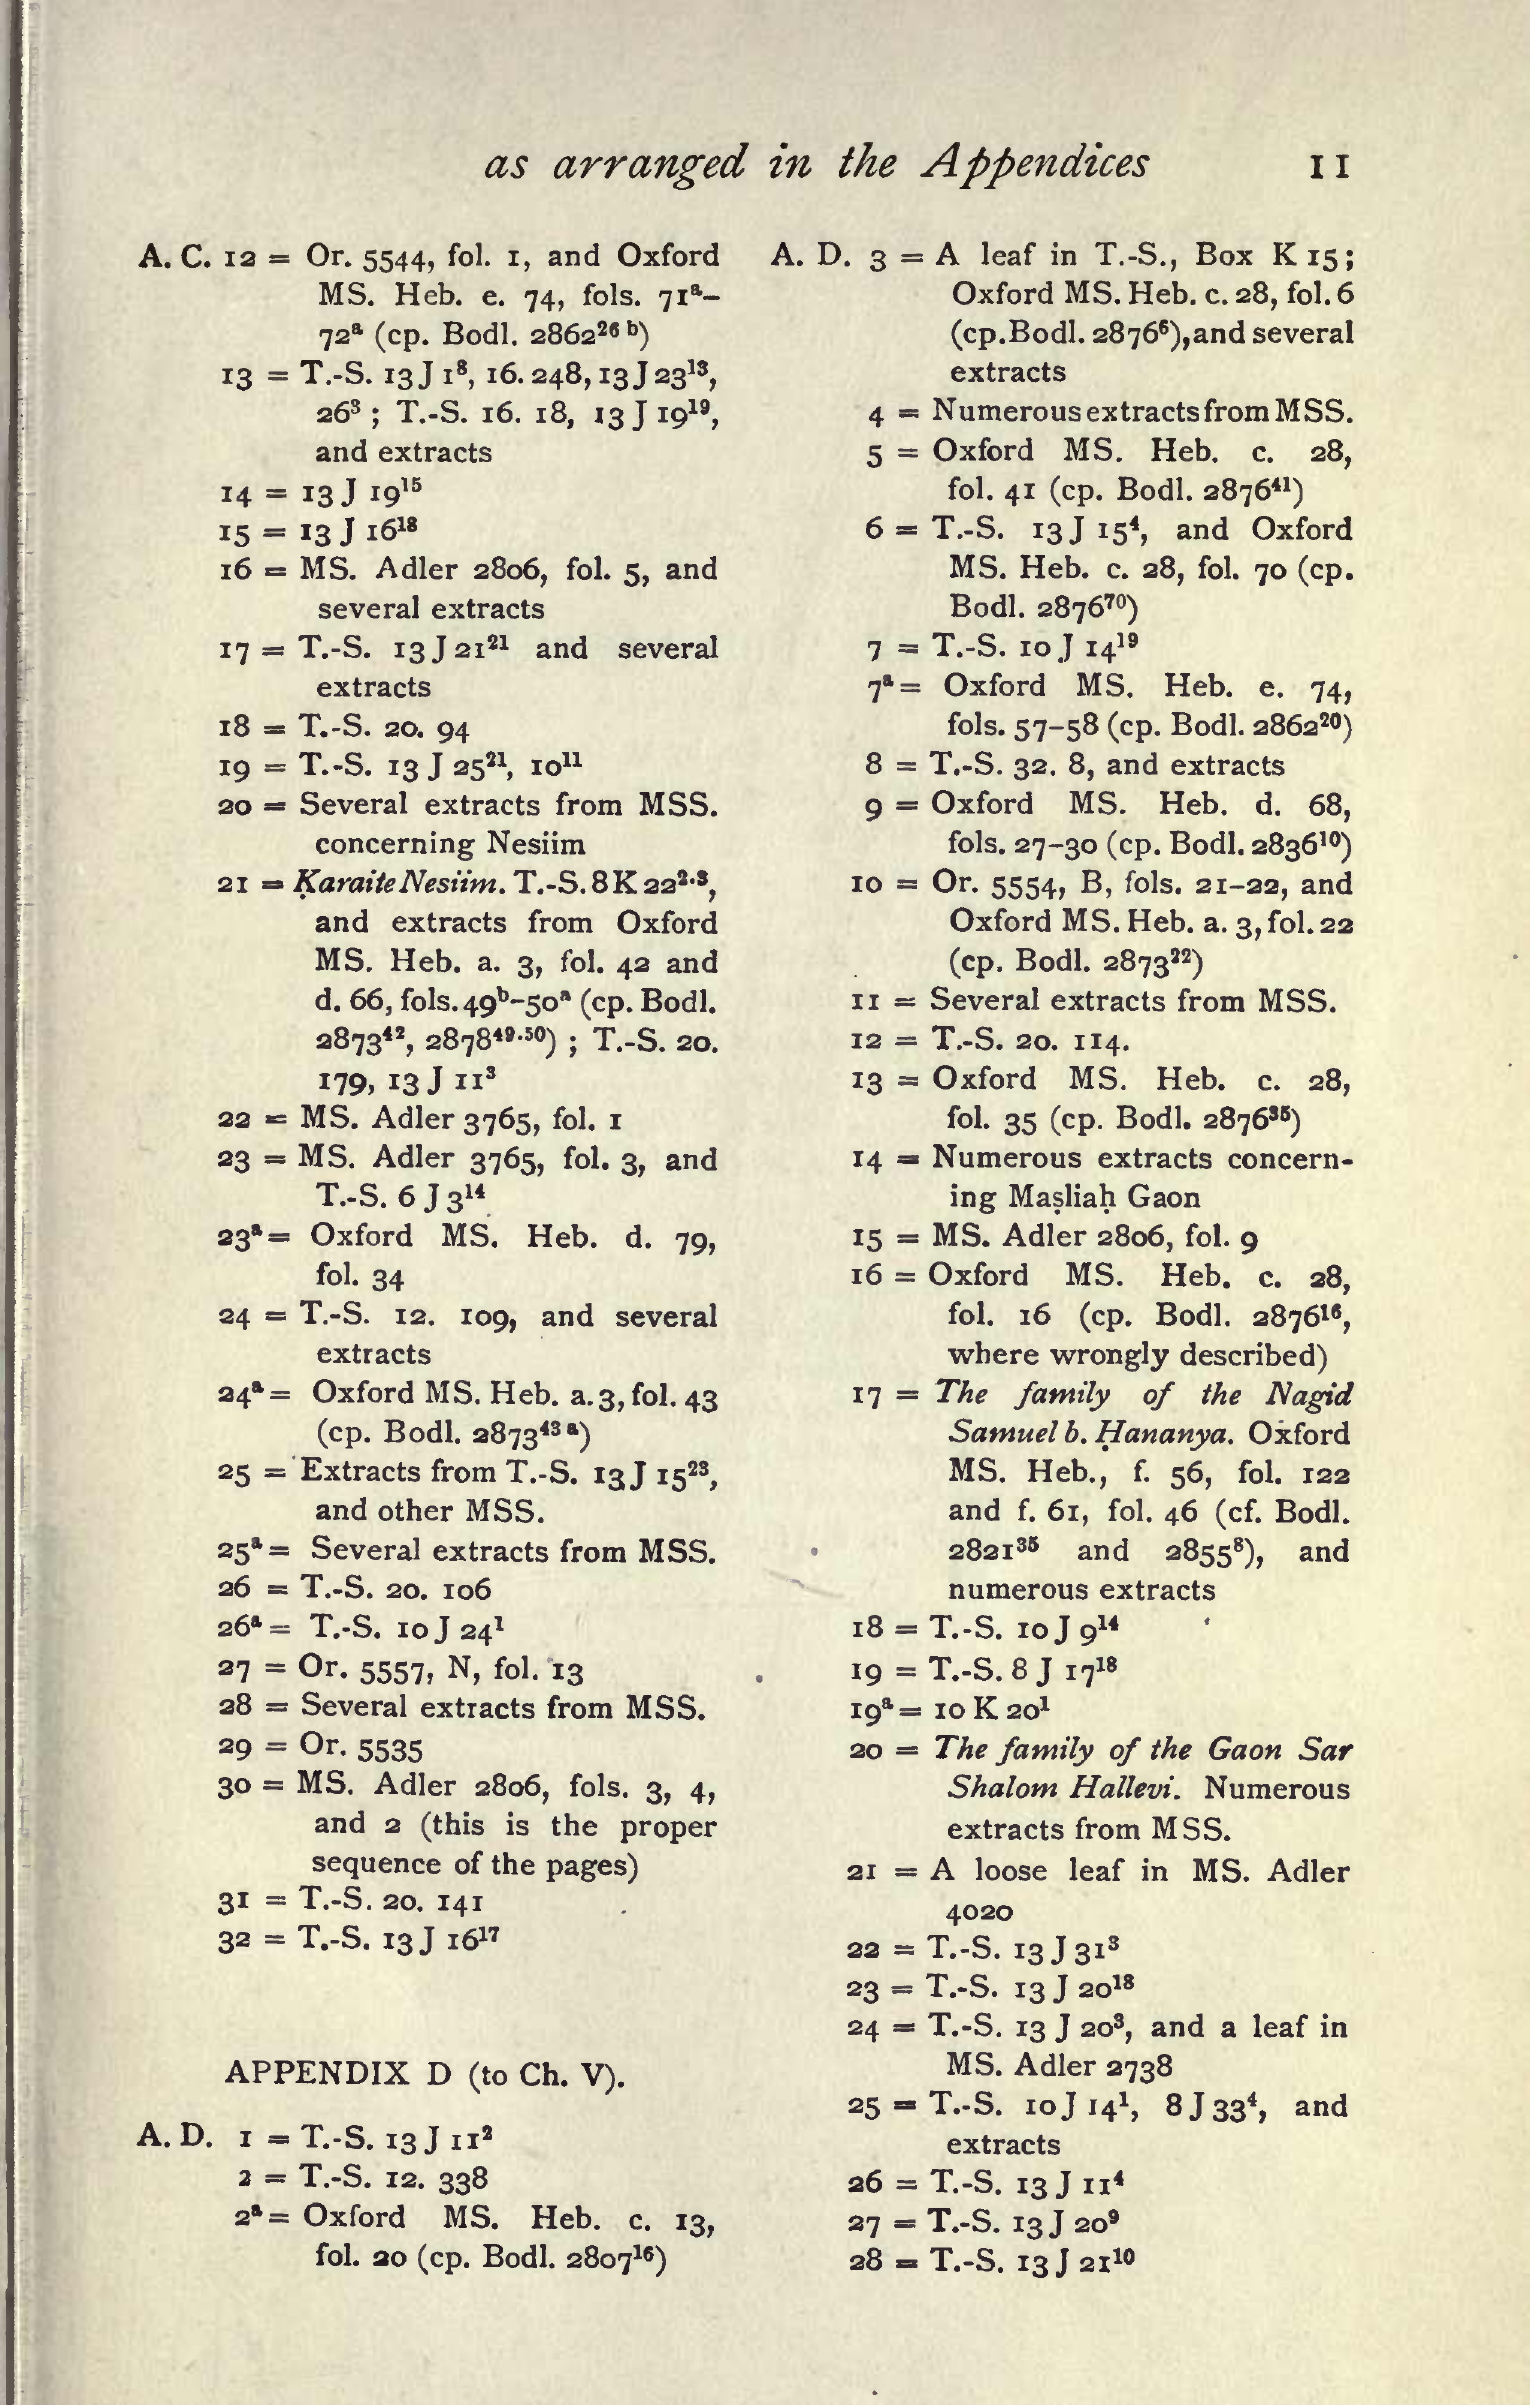 as arranged in the Appendices 11
A. C. 12 = Or. 5544, fol. 1, and Oxford
MS. Heb. e. 74, fols. 71ᵃ–
72ᵃ (cp. Bodl. 2862²⁶ ᵇ)
13 = T.-S. 13 J 1⁸, 16. 248, 13 J 23¹³,
26³ ; T.-S. 16. 18, 13 J 19¹⁹,
and extracts
14 = 13 J 19¹⁵
15 = 13 J 16¹⁸
16 = MS. Adler 2806, fol. 5, and
several extracts
17 = T.-S. 13 J 21²¹ and several
extracts
18 = T.-S. 20. 94
19 = T.-S. 13 J 25²¹, 10¹¹
20 = Several extracts from MSS.
concerning Nesiim
21 = Ḳaraite Nesiim. T.-S. 8 K 22²·³,
and extracts from Oxford
MS. Heb. a. 3, fol. 42 and
d. 66, fols. 49ᵇ–50ᵃ (cp. Bodl.
2873⁴², 2878⁴⁹·⁵⁰) ; T.-S. 20.
179, 13 J 11³
22 = MS. Adler 3765, fol. 1
23 = MS. Adler 3765, fol. 3, and
T.-S. 6 J 3¹⁴
23ᵃ = Oxford MS. Heb. d. 79,
fol. 34
24 = T.-S. 12. 109, and several
extracts
24ᵃ = Oxford MS. Heb. a. 3, fol. 43
(cp. Bodl. 2873⁴³ ᵃ)
25 = Extracts from T.-S. 13 J 15²³,
and other MSS.
25ᵃ = Several extracts from MSS.
26 = T.-S. 20. 106
26ᵃ = T.-S. 10 J 24¹
27 = Or. 5557, N, fol. 13
28 = Several extracts from MSS.
29 = Or. 5535
30 = MS. Adler 2806, fols. 3, 4,
and 2 (this is the proper
sequence of the pages)
31 = T.-S. 20. 141
32 = T.-S. 13 J 16¹⁷
APPENDIX D (to Ch. V).
A. D. 1 = T.-S. 13 J 11²
2 = T.-S. 12. 338
2ᵃ = Oxford MS. Heb. c. 13,
fol. 20 (cp. Bodl. 2807¹⁶)
A. D. 3 = A leaf in T.-S., Box K 15;
Oxford MS. Heb. c. 28, fol. 6
(cp. Bodl. 2876⁶), and several
extracts
4 = Numerous extracts from MSS.
5 = Oxford MS. Heb. c. 28,
fol. 41 (cp. Bodl. 2876⁴¹)
6 = T.-S. 13 J 15⁴, and Oxford
MS. Heb. c. 28, fol. 70 (cp.
Bodl. 2876⁷⁰)
7 = T.-S. 10 J 14¹⁹
7ᵃ = Oxford MS. Heb. e. 74,
fols. 57–58 (cp. Bodl. 2862²⁰)
8 = T.-S. 32. 8, and extracts
9 = Oxford MS. Heb. d. 68,
fols. 27–30 (cp. Bodl. 2836¹⁰)
10 = Or. 5554, B, fols. 21–22, and
Oxford MS. Heb. a. 3, fol. 22
(cp. Bodl. 2873²²)
11 = Several extracts from MSS.
12 = T.-S. 20. 114.
13 = Oxford MS. Heb. c. 28,
fol. 35 (cp. Bodl. 2876³⁵)
14 = Numerous extracts concern-
ing Maṣliaḥ Gaon
15 = MS. Adler 2806, fol. 9
16 = Oxford MS. Heb. c. 28,
fol. 16 (cp. Bodl. 2876¹⁶,
where wrongly described)
17 = The family of the Nagid
Samuel b. Ḥananya. Oxford
MS. Heb., f. 56, fol. 122
and f. 61, fol. 46 (cf. Bodl.
2821³⁵ and 2855⁸), and
numerous extracts
18 = T.-S. 10 J 9¹⁴
19 = T.-S. 8 J 17¹⁸
19ᵃ = 10 K 20¹
20 = The family of the Gaon Sar
Shalom Hallevi. Numerous
extracts from MSS.
21 = A loose leaf in MS. Adler
4020
22 = T.-S. 13 J 31³
23 = T.-S. 13 J 20¹⁸
24 = T.-S. 13 J 20³, and a leaf in
MS. Adler 2738
25 = T.-S. 10 J 14¹, 8 J 33⁴, and
extracts
26 = T.-S. 13 J 11⁴
27 = T.-S. 13 J 20⁹
28 = T.-S. 13 J 21¹⁰